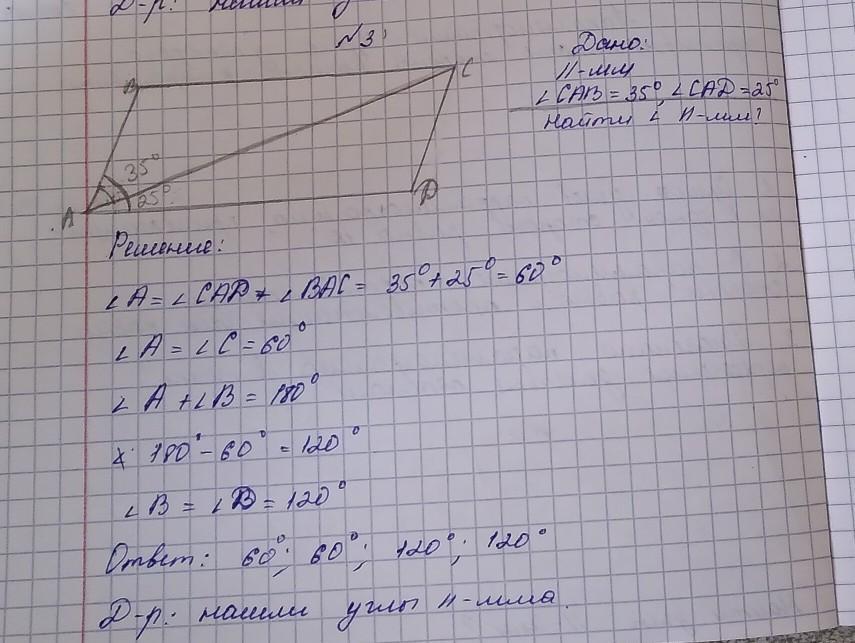 Д-р: нашли у
№3
Дано:
II-мм
∠CAB = 35°, ∠CAD = 25°
Найти ∠ II-мм?
B
C
35°
25°
A
D
Решение:
∠A = ∠CAD + ∠BAC = 35° + 25° = 60°
∠A = ∠C = 60°
∠A + ∠B = 180°
180° - 60° = 120°
∠B = ∠D = 120°
Ответ: 60°; 60°; 120°; 120°
Д-р: нашли углы II-мма.